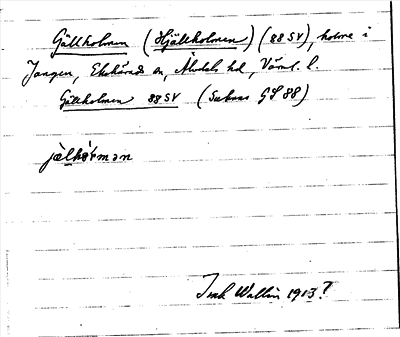 Gällholmen (Hjällholmen) (88 SV), holme i
Jangen, Ekshärads sn, Älvdals hd, Värml. l.
Gällholmen 88 SV (Saknas GS 88)
jälhɔ́rmən
Wallin 1913?